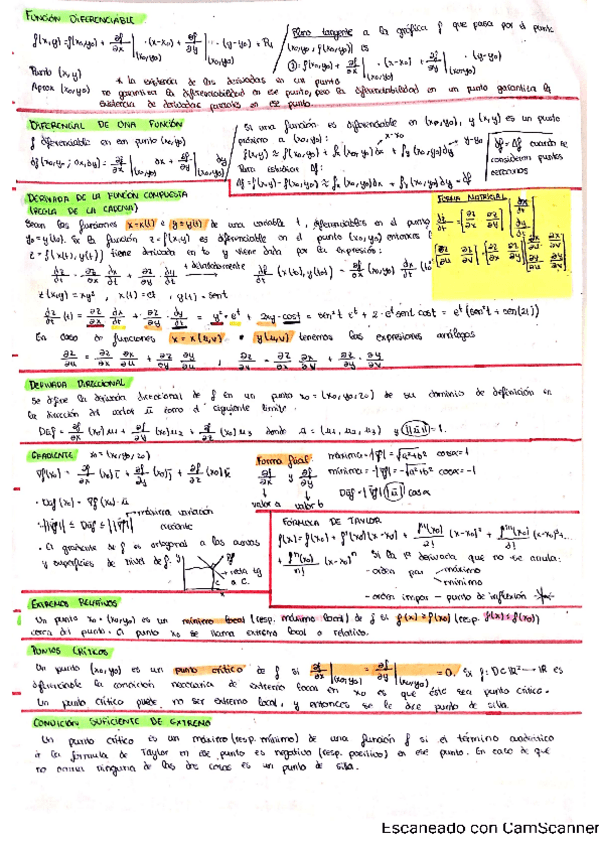 FUNCIÓN DIFERENCIABLE
f(x,y) = f(x₀,y₀) + ∂f/∂x|(x₀,y₀) · (x-x₀) + ∂f/∂y|(x₀,y₀) · (y-y₀) + R₁
Punto (x,y)
Aprox (x₀,y₀)
Plano tangente a la gráfica f que pasa por el punto
(x₀,y₀, f(x₀,y₀)) es
f(x₀,y₀) + ∂f/∂x|(x₀,y₀) · (x-x₀) + ∂f/∂y|(x₀,y₀) · (y-y₀)
* la existencia de las derivadas en un punto
no garantiza la diferenciabilidad en ese punto, pero la diferenciabilidad en un punto garantiza la
existencia de derivadas parciales en ese punto.
DIFERENCIAL DE UNA FUNCIÓN
f diferenciable en un punto (x₀,y₀)
df(x₀,y₀; dx,dy) = ∂f/∂x|(x₀,y₀) dx + ∂f/∂y|(x₀,y₀) dy
Si una función es diferenciable en (x₀,y₀), y (x,y) es un punto
próximo a (x₀,y₀):
x-x₀ y-y₀
f(x,y) ≈ f(x₀,y₀) + fx(x₀,y₀)dx + fy(x₀,y₀)dy
Para estudiar Δf:
Δf = f(x,y) - f(x₀,y₀) ≈ fx(x₀,y₀)dx + fy(x₀,y₀)dy = df
Δf ≈ df cuando se
consideran puntos
cercanos
DERIVADA DE LA FUNCIÓN COMPUESTA
(REGLA DE LA CADENA)
Sean las funciones x=x(t) e y=y(t) de una variable t, diferenciables en el punto
y₀=y(t₀). Si la función z=f(x,y) es diferenciable en el punto (x₀,y₀) entonces
z=f(x(t),y(t)) tiene derivada en t₀ y viene dada por la expresión:
FORMA MATRICIAL
dz/dt = ∂z/∂x · dx/dt + ∂z/∂y · dy/dt
z(x,y) = xy², x(t) = et, y(t) = sent
dz/dt (t) = ∂z/∂x dx/dt + ∂z/∂y · dy/dt = y² · eᵗ + 2xy · cost = sen²t eᵗ + 2·eᵗ sent cost = eᵗ (sen²t + sen(2t))
En caso de funciones x = x(u,v) e y(u,v) tenemos las expresiones análogas
∂z/∂u = ∂z/∂x ∂x/∂u + ∂z/∂y ∂y/∂u , ∂z/∂v = ∂z/∂x · ∂x/∂v + ∂z/∂y · ∂y/∂v
DERIVADA DIRECCIONAL
Se define la derivada direccional de f en un punto x₀ = (x₀,y₀,z₀) de su dominio de definición en
la dirección del vector ū como el siguiente límite.
Dūf = ∂f/∂x (x₀)u₁ + ∂f/∂y (x₀)u₂ + ∂f/∂z (x₀)u₃ donde ū = (u₁,u₂,u₃) y ||ū|| = 1.
GRADIENTE x₀=(x₀,y₀,z₀)
∇f(x₀) = ∂f/∂x (x₀)ī + ∂f/∂y (x₀)j̄ + ∂f/∂z (x₀)k̄
• Dūf(x₀) = ∇f(x₀)·ū
máxima variación
-||∇f|| ≤ Dūf ≤ ||∇f||
• El gradiente de f es ortogonal a las curvas
y superficies de nivel de f.
∇f
recta tg
a C.
Forma fácil:
∂f/∂x y ∂f/∂y
valor a valor b
máxima = |∇f| = √a²+b² cosα=1
mínima = -|∇f| = -√a²+b² cosα=-1
Dūf = |∇f| |ū| cosα
FÓRMULA DE TAYLOR
f(x) = f(x₀) + f'(x₀)(x-x₀) + f''(x₀)/2! (x-x₀)² + f'''(x₀)/3! (x-x₀)³ + ...
+ fⁿ(x₀)/n! (x-x₀)ⁿ
Si la 1ª derivada que no se anula:
- orden par máximo
mínimo
- orden impar - punto de inflexión
EXTREMOS RELATIVOS
Un punto x₀ = (x₀,y₀) es un mínimo local (resp. máximo local) de f si f(x) ≥ f(x₀) (resp. f(x) ≤ f(x₀))
cerca del punto. El punto x₀ se llama extremo local o relativo.
PUNTOS CRÍTICOS
Un punto (x₀,y₀) es un punto crítico de f si ∂f/∂x|(x₀,y₀) = ∂f/∂y|(x₀,y₀) = 0. Si f: D⊂ℝ²→ℝ es
diferenciable la condición necesaria de extremo local en x₀ es que éste sea punto crítico.
Un punto crítico puede no ser extremo local, y entonces se le dice punto de silla.
CONDICIÓN SUFICIENTE DE EXTREMO
Un punto crítico es un máximo (resp. mínimo) de una función f si el término cuadrático
de la fórmula de Taylor en ese punto es negativo (resp. positivo) en ese punto. En caso de que
no ocurra ninguna de las dos cosas es un punto de silla.
Escaneado con CamScanner